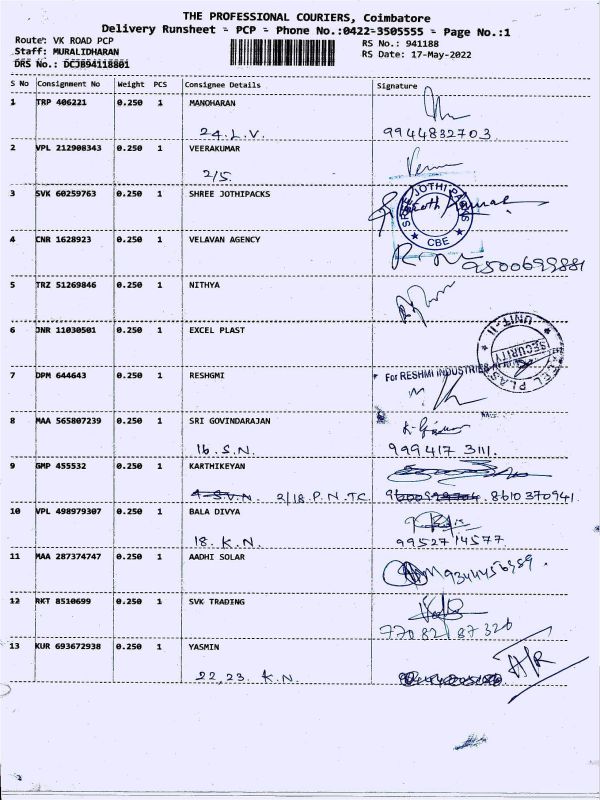 THE PROFESSIONAL COURIERS, Coimbatore
Delivery Runsheet - PCP - Phone No.:0422-3505555 - Page No.:1
Route: VK ROAD PCP
Staff: MURALIDHARAN
DRS No.: DCJB94118801
RS No.: 941188
RS Date: 17-May-2022
S No Consignment No Weight PCS Consignee Details Signature
1 TRP 406221 0.250 1 MANOHARAN
24.L.V. 9944832703
2 VPL 212908343 0.250 1 VEERAKUMAR
2/5
3 SVK 60259763 0.250 1 SHREE JOTHIPACKS
SHREE JOTHI PACKS
CBE
4 CNR 1628923 0.250 1 VELAVAN AGENCY
9500699881
5 TRZ 51269846 0.250 1 NITHYA
6 JNR 11030501 0.250 1 EXCEL PLAST
UNIT-II
SECURITY
7 DPM 644643 0.250 1 RESHGMI
For RESHMI INDUSTRIES
8 MAA 565807239 0.250 1 SRI GOVINDARAJAN
16.S.N. 999417 3111.
9 GMP 455532 0.250 1 KARTHIKEYAN
4-S.V.N. 2/18.P.N.TC. 8610370941.
10 VPL 498979307 0.250 1 BALA DIVYA
18.K.N. 9952714577
11 MAA 287374747 0.250 1 AADHI SOLAR
9344456989.
12 RKT 8510699 0.250 1 SVK TRADING
7708287326
13 KUR 693672938 0.250 1 YASMIN
22,23. K.N.
A/R